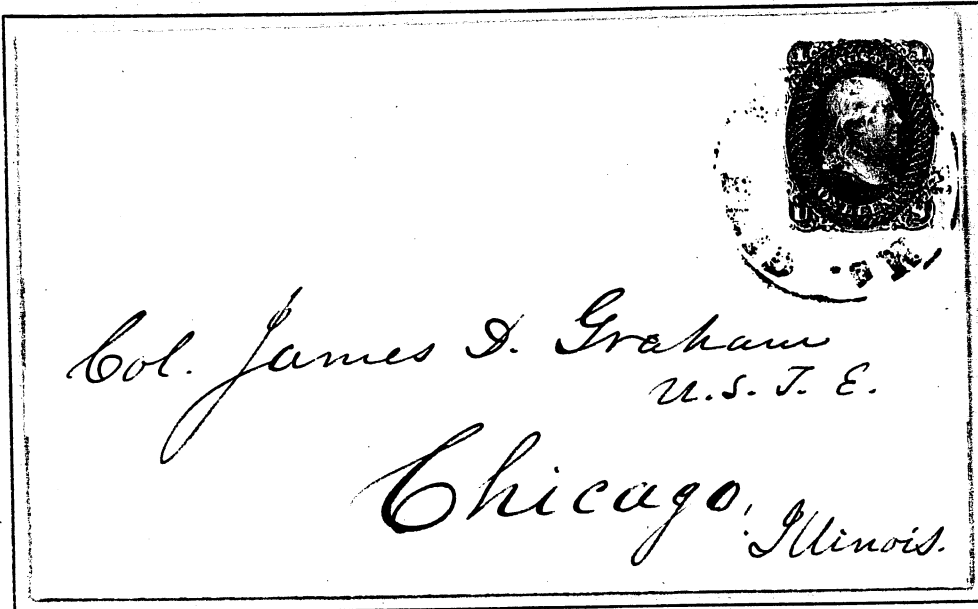 1 1
U S
Col. James D. Graham
U.S.T.E.
Chicago,
Illinois.